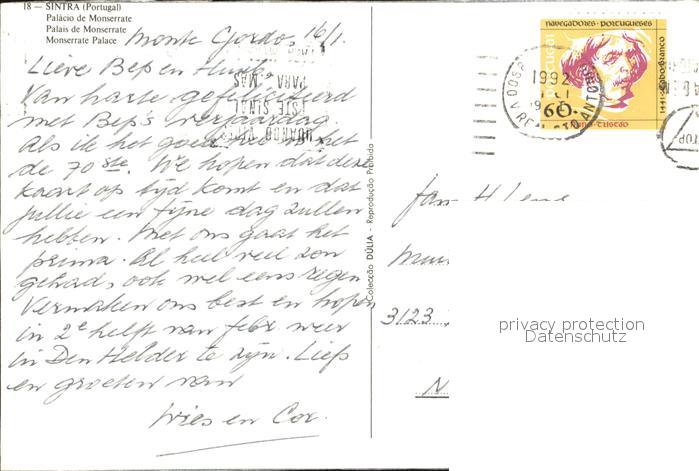 18 — SINTRA (Portugal)
Palácio de Monserrate
Palais de Monserrate
Monserrate Palace
Monte Gordo, 16/1.
Lieve Bep en Huib,
Van harte gefeliciteerd
met Bep's verjaardag.
Als ik het goed heb is het
de 70ste. We hopen dat deze
kaart op tijd komt en dat
jullie een fijne dag zullen
hebben. Met ons gaat het
prima. Al heel veel zon
gehad, ook wel eens regen
Vermaken ons best en hopen
in 2e helft van febr weer
in Den Helder te zijn. Liefs
en groeten van
Wies en Cor.
Colecção DÚLIA - Reprodução Proibido
NAVEGADORES PORTUGUESES
PORTUGAL
60.
NUNO TRISTÃO
1992
QUANDO
ESTE SINAL
PARA MAS
Fam
3123
N
privacy protection
Datenschutz